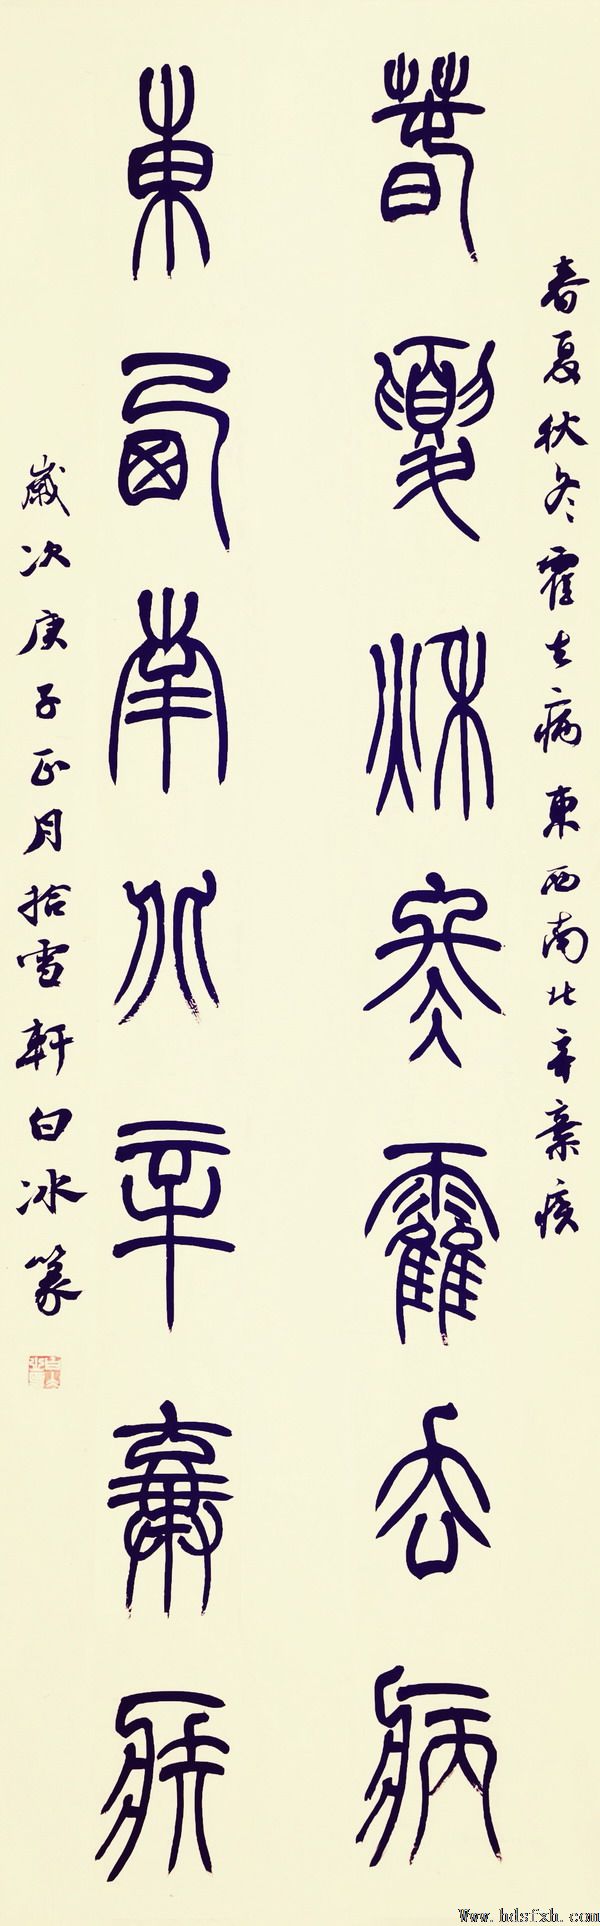 春夏秋冬霍去病東西南北辛棄疾
春夏秋冬霍去病
東西南北辛棄疾
歲次庚子正月拾雪軒白冰篆